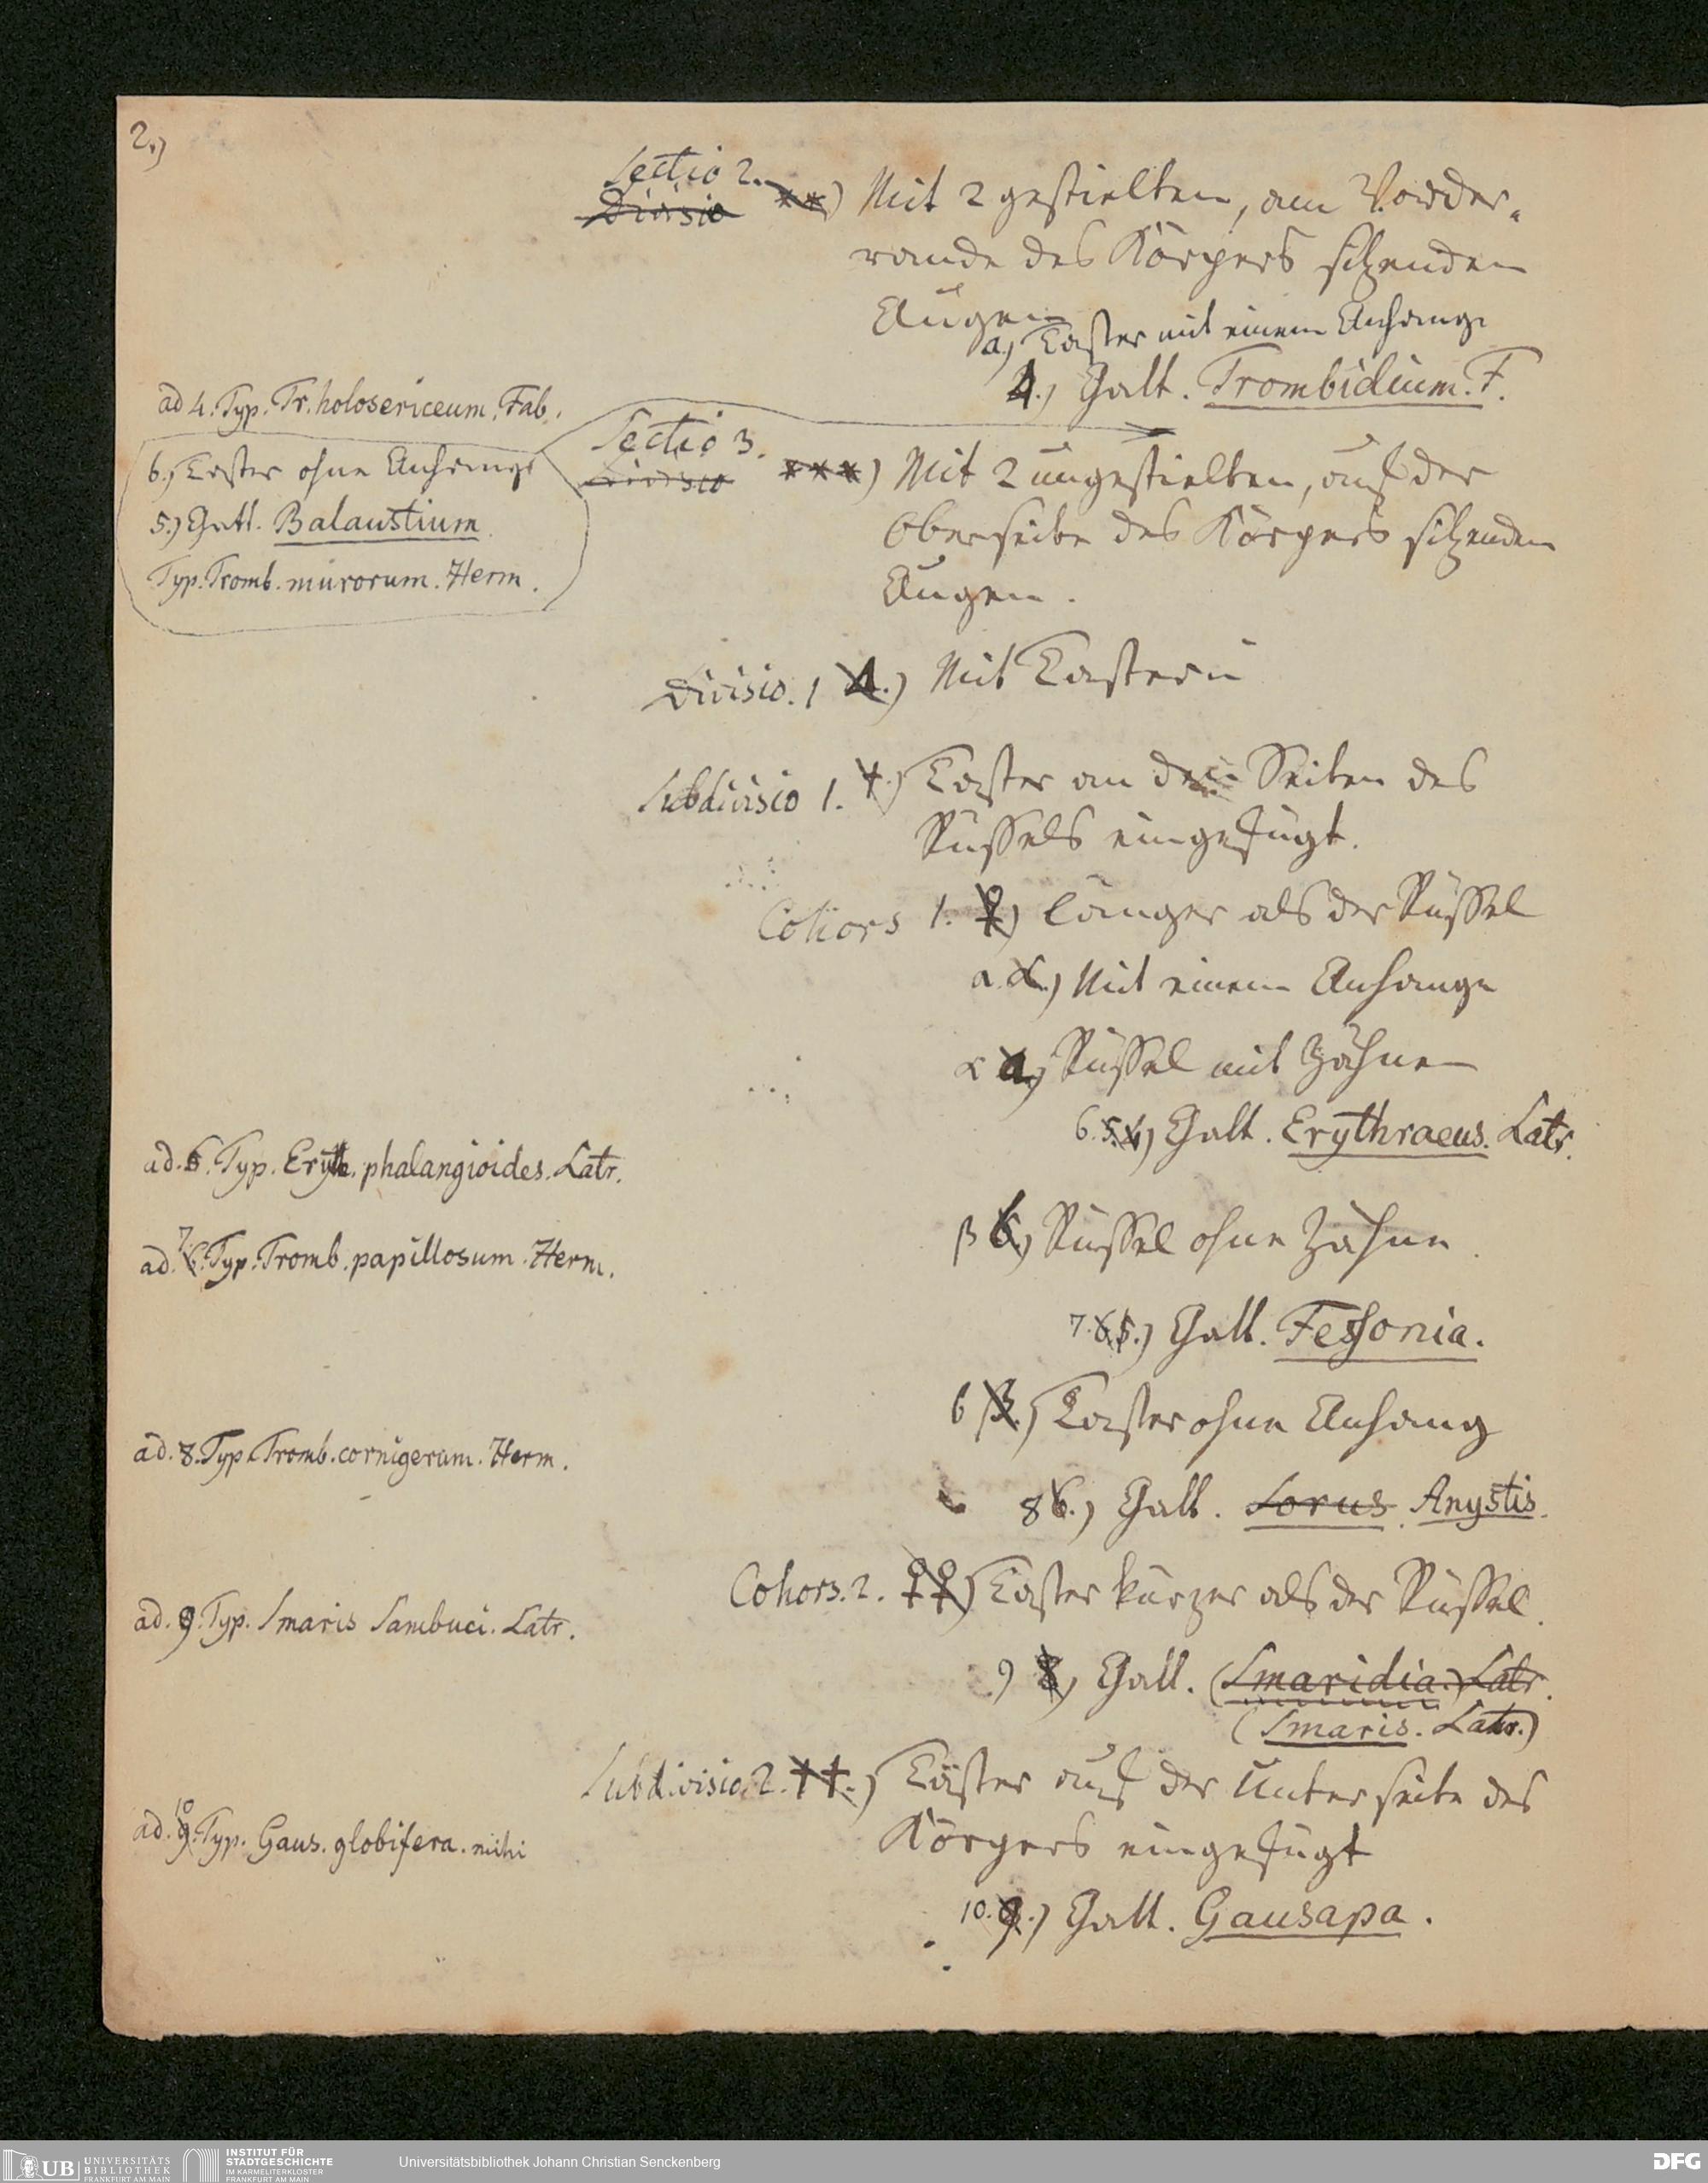 2.)
Sectio 2.
Divisio **) Mit 2 gestielten, am Vorder-
rande des Körpers sitzenden
Augen
a.) Taster mit einem Anhange
4.) Gatt. Trombidium. F.
ad 4. Typ. Tr. holosericeum. Fab.
b.) Taster ohne Anhange
5.) Gatt. Balaustium.
Typ. Tromb. murorum. Herm.
Sectio 3.
Divisio ***) Mit 2 ungestielten, auf der
Oberseite des Körpers sitzenden
Augen.
Divisio. 1 A.) Mit Tastern
Subdivisio 1. †.) Taster an den Seiten des
Rüssels eingefügt.
Cohors 1. ♀) länger als der Rüssel
a. α.) Mit einem Anhange
α a.) Rüssel mit Zähnen
6. 5. 4.) Gatt. Erythraeus. Latr.
ad. 6. Typ. Eryth. phalangioides. Latr.
β b.) Rüssel ohne Zähne.
ad. 7. 6. Typ. Tromb. papillosum. Herm.
7. 6. 5.) Gatt. Fessonia.
b β.) Taster ohne Anhang
ad. 8. Typ. Tromb. cornigerum. Herm.
8 6.) Gatt. Sorus. Anystis.
Cohors. 2. ♀♀) Taster kürzer als der Rüssel.
ad. 9. Typ. Smaris Sambuci. Latr.
9) 8.) Gatt. (Smaridia.) Latr.
(Smaris. Latr.)
Subdivisio 2. ††.) Taster auf der Unterseite des
Körpers eingefügt
ad. 10 9. Typ. Gaus. globifera. mihi
10. 9.) Gatt. Gausapa.
UB UNIVERSITÄTS
BIBLIOTHEK
FRANKFURT AM MAIN
INSTITUT FÜR
STADTGESCHICHTE
IM KARMELITERKLOSTER
FRANKFURT AM MAIN
Universitätsbibliothek Johann Christian Senckenberg
DFG